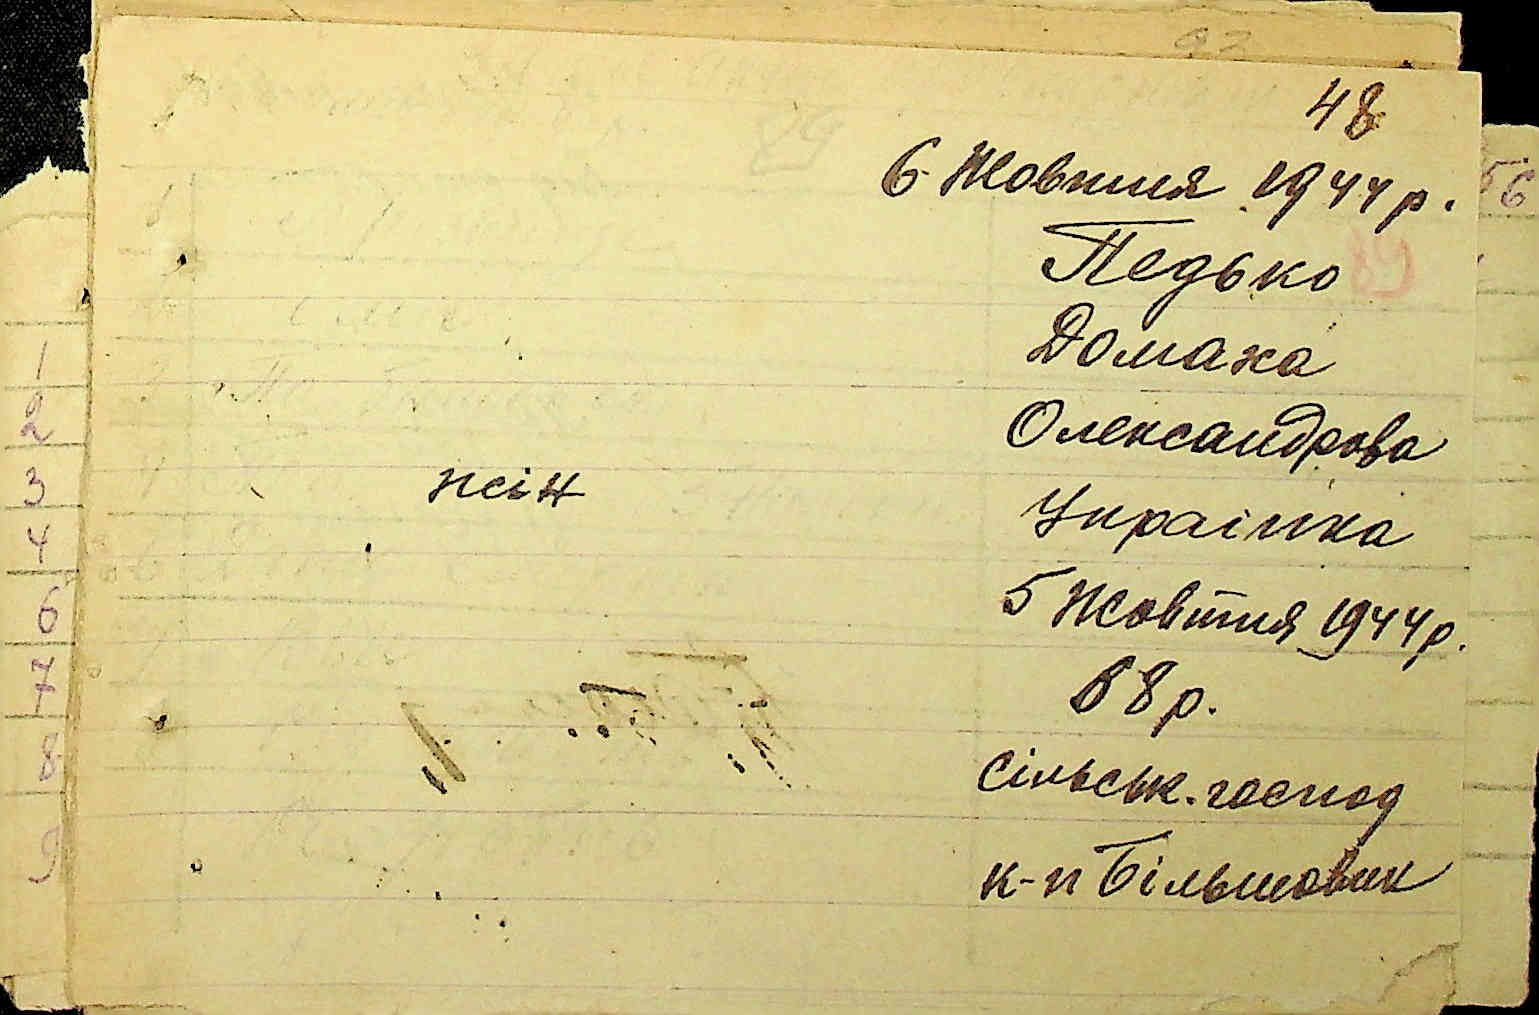 48
6 Жовтня 1944 р.
Педько
Домаха
Олександрова
жін
Українка
5 Жовтня 1944 р.
68 р.
сільськ. господ
к-п Більшовик
56
1
2
3
4
6
7
8
9